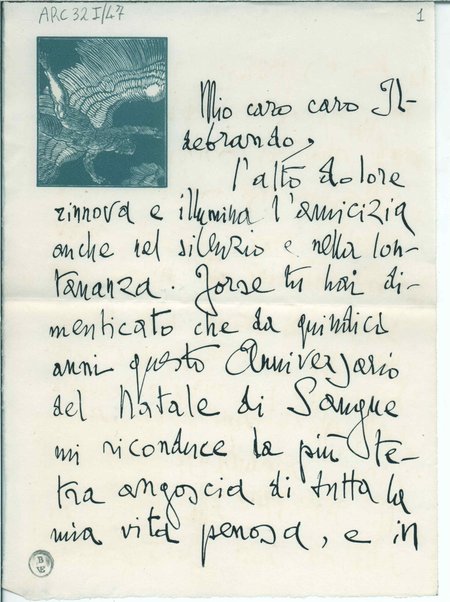 ARC 32 I/47
1
Mio caro caro Il-
debrando,
l'alto dolore
rinnova e illumina l'amicizia
anche nel silenzio e nella lon-
tananza. Forse tu hai di-
menticato che da quindici
anni questo Anniversario
del Natale di Sangue
mi riconduce la più te-
tra angoscia di tutta la
mia vita penosa, e in